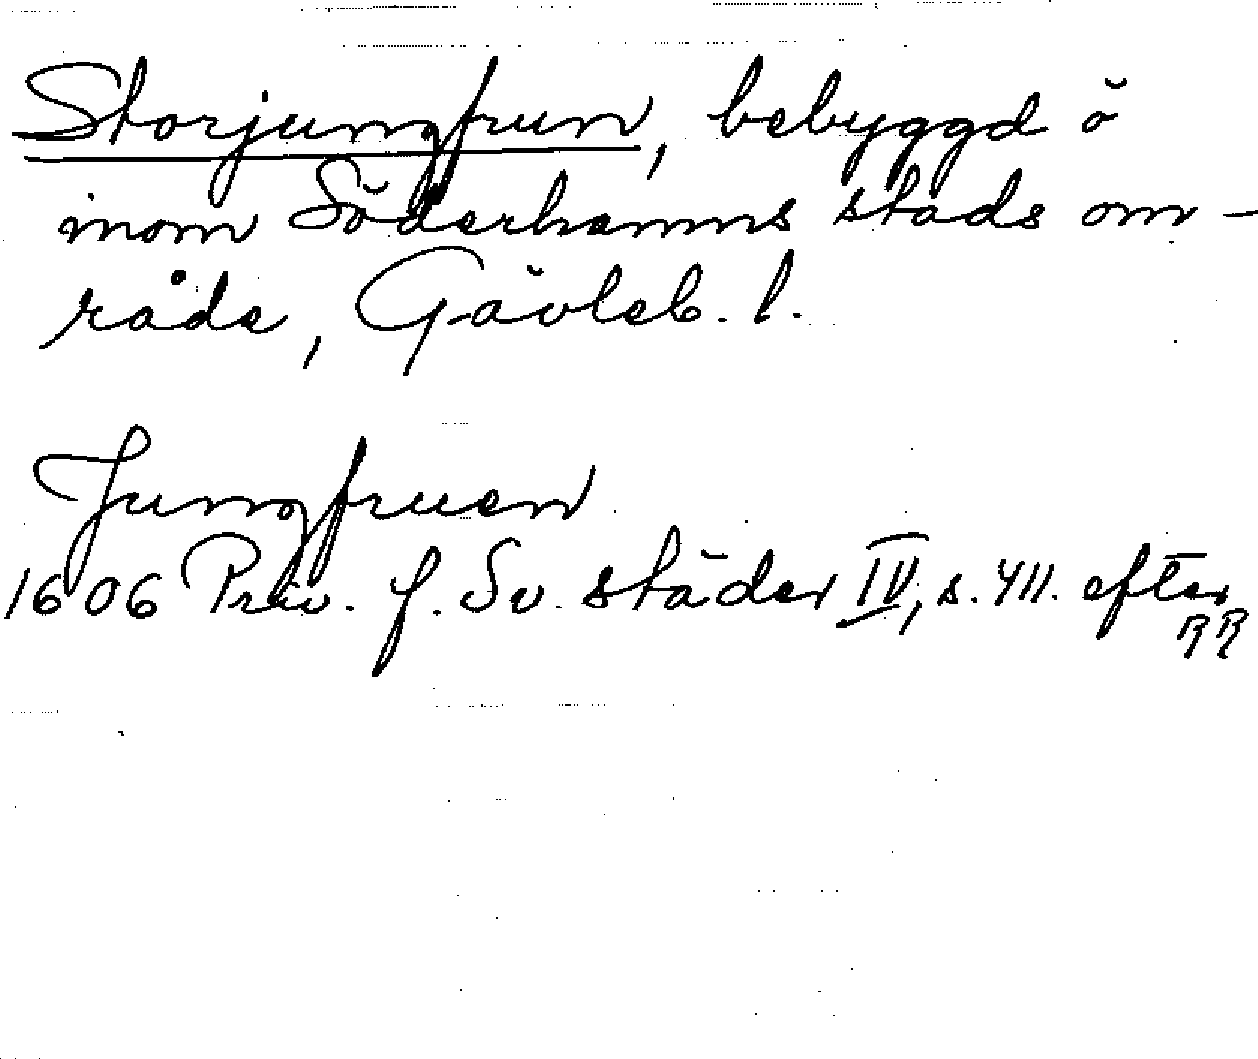 Storjungfrun, bebyggd ö
inom Söderhamns stads om-
råde, Gävleb. l.
Jungfruen
1606 Priv. f. Sv. städer IV, s. 411. efter
RR